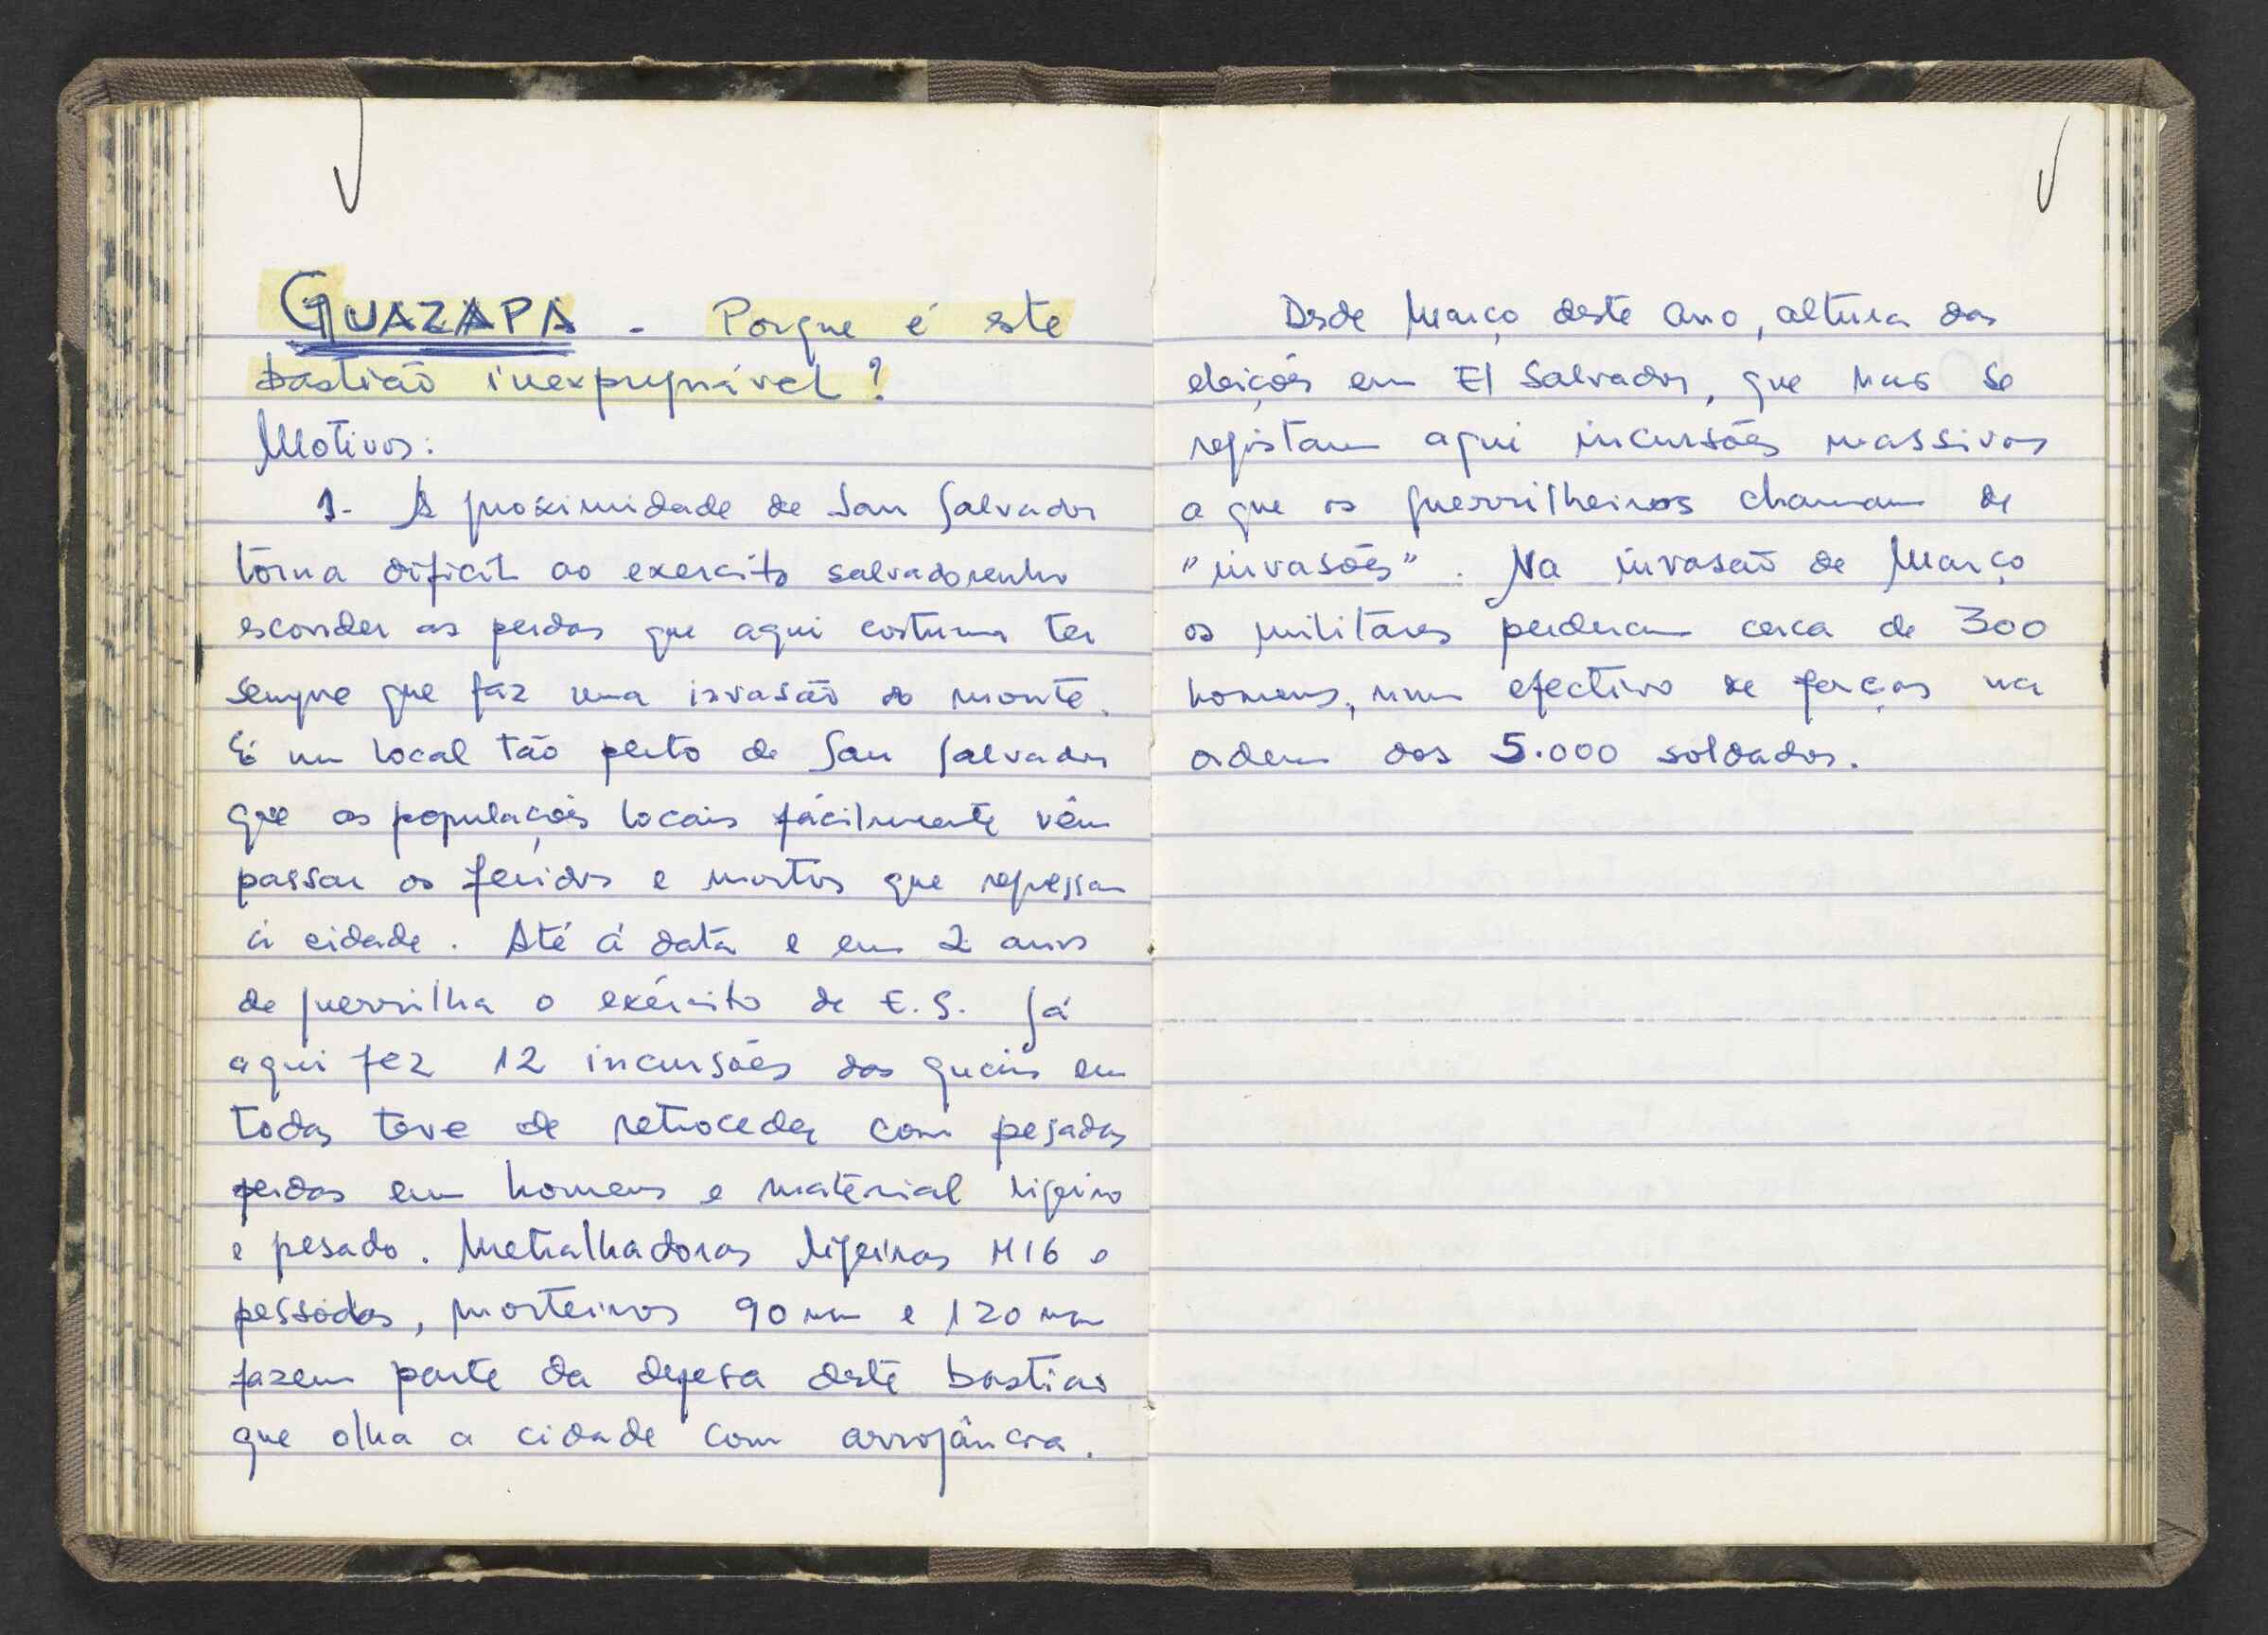 GUAZAPA - Porque é este
bastião inexpugnável?
Motivos:
1- A proximidade de San Salvador
torna dificil ao exercito salvadorenho
esconder as perdas que aqui costuma ter
sempre que faz uma invasão ao monte.
É um local tão perto de San Salvador
que as populações locais fácilmente vêm
passar os feridos e mortos que regressam
á cidade. Até á data e em 2 anos
de guerrilha o exército de E.S. já
aqui fez 12 incursões das quais em
todas teve de retroceder com pesadas
perdas em homens e material ligeiro
e pesado. Metralhadoras ligeiras M16 e
pessadas, morteiros 90 mm e 120 mm
fazem parte da defesa deste bastião
que olha a cidade com arrogância.
Desde Março deste ano, altura das
eleições em El Salvador, que nao se
registam aqui incursões massivas
a que os guerrilheiros chamam de
"invasões". Na invasão de Março
os militares perderam cerca de 300
homens, num efectivo de forças na
ordem dos 5.000 soldados.